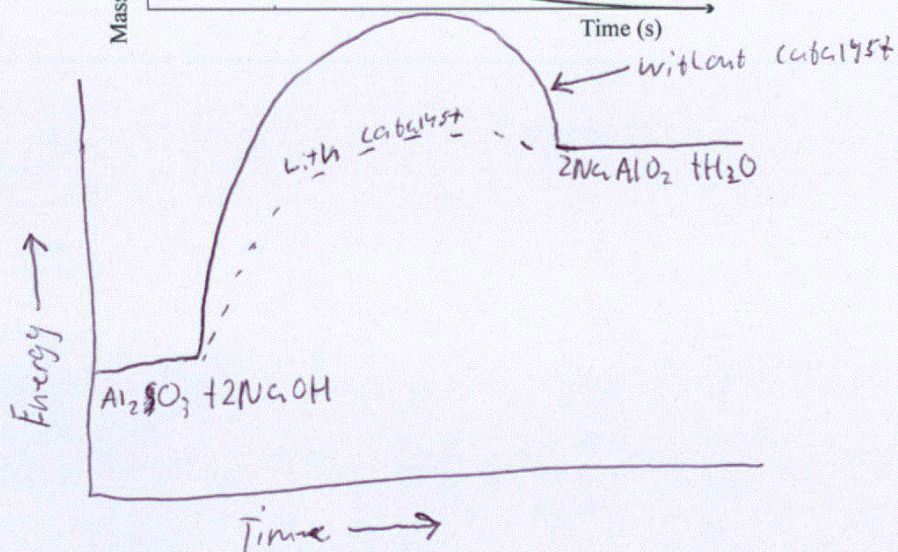 Mass
Time (s)
without catalyst
with catalyst
2NaAlO₂ + H₂O
Energy →
Al₂O₃ + 2NaOH
Time →